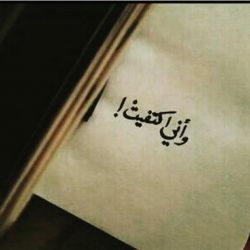 وأني اكتفيتُ!